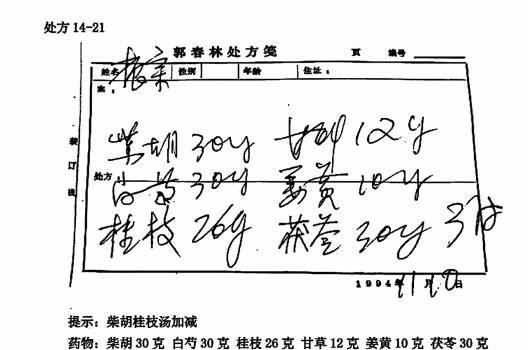 处方 14-21
郭春林处方笺 页 编号
姓名 振宗 性别 年龄 住址：
案：
柴胡 30g 甘草 12g
装订线
处方
白芍 30g 姜黄 10g
桂枝 26g 茯苓 30g 3付
1994年11月10日
提示：柴胡桂枝汤加减
药物：柴胡 30 克 白芍 30 克 桂枝 26 克 甘草 12 克 姜黄 10 克 茯苓 30 克